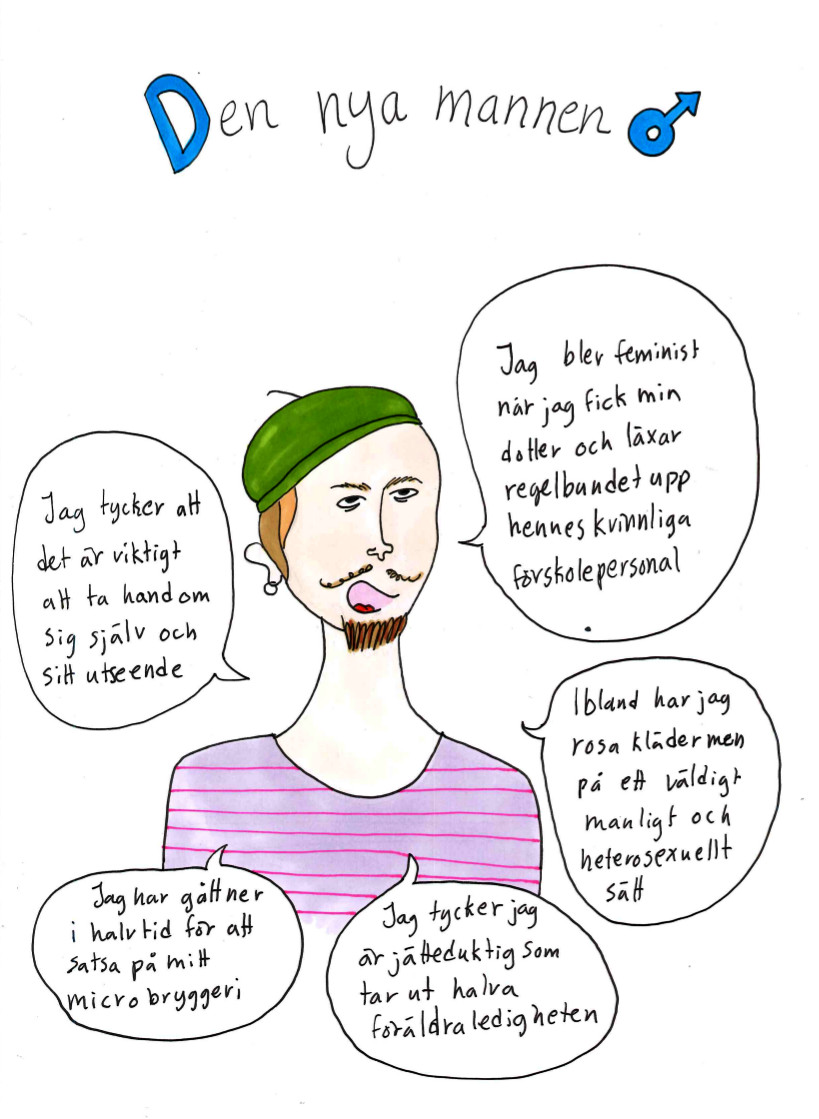 Den nya mannen
Jag blev feminist
när jag fick min
dotter och läxar
regelbundet upp
hennes kvinnliga
förskolepersonal
.
Jag tycker att
det är viktigt
att ta hand om
sig själv och
sitt utseende
Ibland har jag
rosa kläder men
på ett väldigt
manligt och
heterosexuellt
sätt
Jag har gått ner
i halvtid för att
satsa på mitt
microbryggeri
Jag tycker jag
är jätteduktig som
tar ut halva
föräldraledigheten